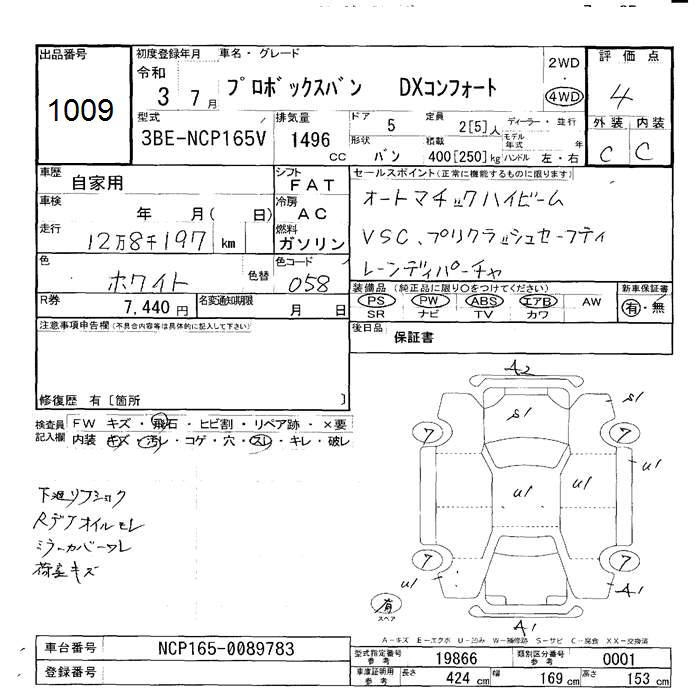 出品番号
1009
初度登録年月 車名・グレード
令和
3 7月
プロボックスバン DXコンフォート
2WD
・
4WD
評価点
4
外装 内装
C C
型式
3BE-NCP165V
排気量
1496
CC
ドア 5
定員 2[5]人
ディーラー・並行
形状 バン
積載 400[250]kg
モデル年式 年
ハンドル 左・右
車歴
自家用
シフト
FAT
車検
年 月( 日)
冷房
AC
走行
12万8千197 km
燃料
ガソリン
色
ホワイト
色替
色コード
058
R券
7,440円
名変通知期限
月 日
セールスポイント(正常に機能するものに限ります)
オートマチックハイビーム
VSC、プリクラッシュセーフティ
レーンディパーチャ
装備品 (純正品に限り○をつけてください)
PS PW ABS エアB AW
SR ナビ TV カワ
新車保証書
有・無
後日品
保証書
注意事項申告欄(不具合内容等は具体的に記入して下さい)
修復歴 有 [箇所 ]
検査員
記入欄
FW キズ・飛石・ヒビ割・リペア跡・×要
内装 キズ・汚レ・コゲ・穴・スレ・キレ・破レ
Rデフオイルモレ
ミラーカバーワレ
荷室キズ
A2
S1
S1
7
7
U1
U1
U1
7
7
U1
A1
A1
有
スペア
A-キズ E-エクボ U-凹み W-補修跡 S-サビ C-腐食 XX-交換済
車台番号
NCP165-0089783
登録番号
型式指定番号
参考
19866
類別区分番号
参考
0001
車庫証明用
参考
長さ 424 cm
幅 169 cm
高さ 153 cm